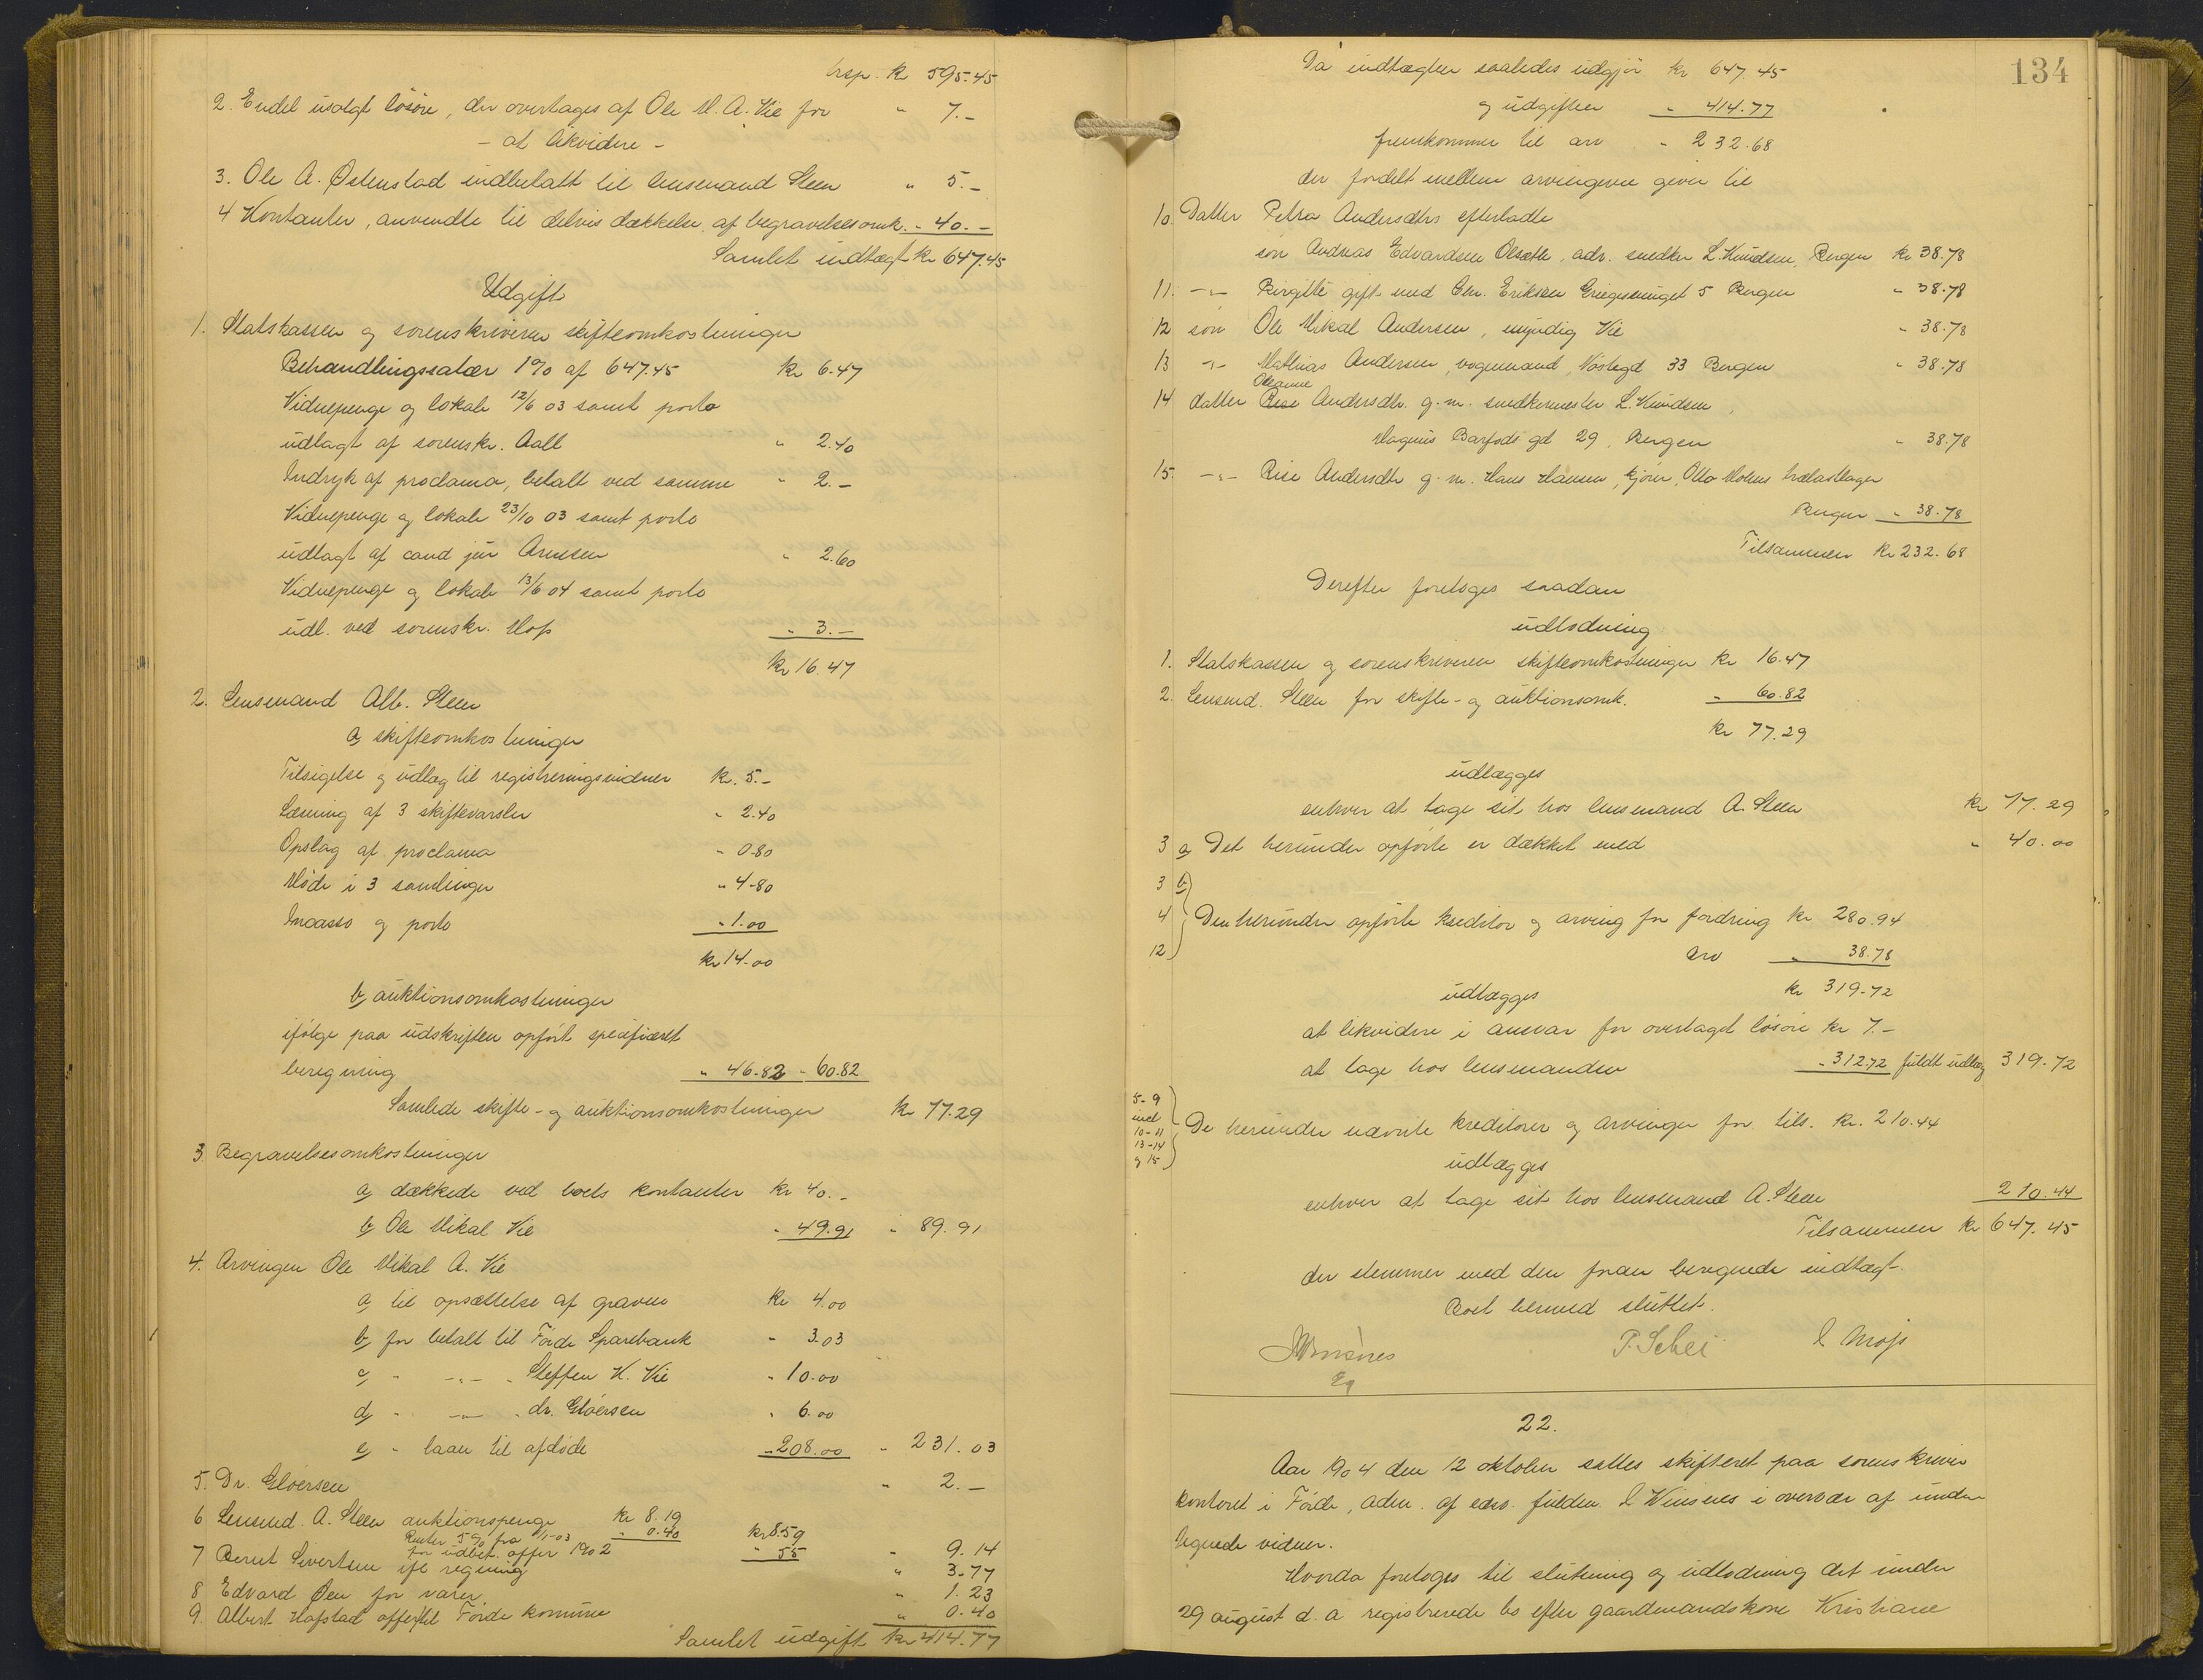 trsp. kr 595.45
2. Endel usolgt lösöre, der overtages af Ole M. A. Vie for " 7.-
- at likvidere -
3. Ole A. Østenstad indbetalt til lensmand Steen " 5.-
4 Kontanter, anvendte til delvis dækkelse af begravelsesomk. - 40.-
Samlet indtægt kr 647.45
Udgift
1. Statskassen og sorenskriveren skifteomkostninger
Behandlingssalær 1% af 647.45 kr 6.47
Vidnepenge og lokale 12/6 03 samt porto
udlagt af sorenskr. Aall " 2.40
Indryk af proclama, betalt ved samme " 2.-
Vidnepenge og lokale 23/10 03 samt porto
udlagt af cand jur Arnesen " 2.60
Vidnepenge og lokale 13/6 04 samt porto
udl. ved sorenskr. Mop " 3.-
kr 16.47
2. Lensmand Alb. Steen
a, skifteomkostninger
Tilsigelse og udlæg til registreringsvidner kr. 5.-
Læsning af 3 skiftevarsler " 2.40
Opslag af proclama - 0.80
Möde i 3 samlinger " 4.80
Incasso og porto - 1.00
kr 14.00
b, auktionsomkostninger
ifölge paa udskriften opfört specificeret
beregning " 46.82 - 60.82
Samlede skifte- og auktionsomkostninger kr 77.29
3 Begravelsesomkostninger
a, dækkede ved boets kontanter kr 40.-
b, Ole Mikal Vie - 49.91 " 89.91
4. Arvingen Ole Mikal A. Vie
a, til opsættelse af graven kr 4.00
b, for betalt til Förde Sparebank " 3.03
c, " -"- " Steffen K. Vie " 10.00
d, " -"- " dr. Glöersen " 6.00
e, " laan til afdöde - 208.00 " 231.03
5. Dr. Glöersen " 2.-
6 Lensmd. A. Steen auktionspenge kr 8.19
Renter 5% fra 1/1-03 " 0.40 kr 8.59
for udbet. offer 1902 " 55 " 9.14
7 Bernt Sivertsen ifl regning " 3.77
8 Edvard Øen for varer " 1.23
9. Albert Hafstad offer til Förde kommune " 0.40
Samlet udgift kr 414.77
134
Da indtægten saaledes udgjör kr 647.45
og udgiften " 414.77
fremkommer til arv " 232.68
der fordelt mellem arvingerne giver til
10. Datter Petra Andersdtrs efterladte
sön Andreas Edvardsen Olsæth, adr. snedker L. Knudsen, Bergen kr 38.78
11. -"- Birgitte gift med Chr. Eriksen Griegsmuget 5 Bergen " 38.78
12 sön Ole Mikal Andersen, myndig Vie " 38.78
13 -"- Mathias Andersen, vognmand, Nöstegd 33 Bergen " 38.78
Oleanne
14 datter Rise Andersdtr. g. m. snedkermester L. Knudsen,
Magnus Barfods gd 29, Bergen " 38.78
15. -"- Rise Andersdtr g. m. Hans Hansen, kjörer, Otto Mohns trælastlager
Bergen " 38.78
Tilsammen kr 232.68
Derefter foretoges saadan
udlodning
1. Statskassen og sorenskriveren skifteomkostninger kr 16.47
2. Lensmd. Steen for skifte- og auktionsomk. " 60.82
kr 77.29
udlægges
enhver at tage sit hos lensmand A. Steen kr 77.29
3 a, Det herunder opförte er dækket med " 40.00
3 b,
4 Den herunder opförte kreditor og arving for fordring kr 280.94
12 arv " 38.78
udlægges kr 319.72
at likvidere i ansvar for overtaget lösöre kr 7.-
at tage hos lensmanden - 312.72 fuldt udlæg 319.72
5-9
incl
10-11
13-14
og 15
De herunder nævnte kreditorer og arvinger for tils. kr. 210.44
udlægges
enhver at tage sit hos lensmand A. Steen 210.44
Tilsammen kr 647.45
der stemmer med den foran beregnede indtægt.
Boet hermed sluttet.
P. Schei
22.
Aar 1904 den 12 oktober sattes skifteret paa sorenskriver
kontoret i Förde, adm. af edsv. fuldm. I Winsnes i overvær af under
tegnede vidner.
Hvorda foretoges til slutning og udlodning det under
29 august d. a registrerede bo efter gaardmandskone Kristiane